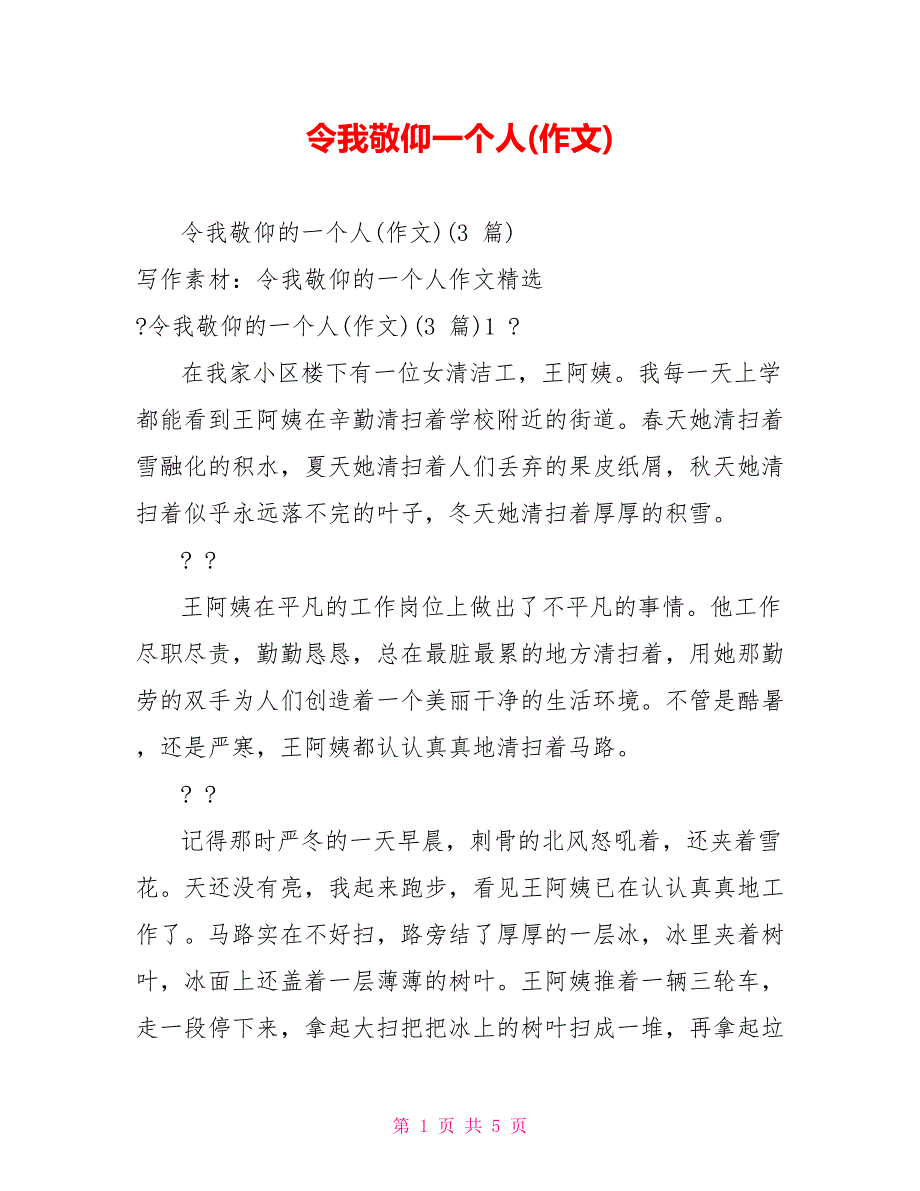 令我敬仰一个人(作文)
令我敬仰的一个人(作文)(3 篇)
写作素材：令我敬仰的一个人作文精选
?令我敬仰的一个人(作文)(3 篇)1 ?
在我家小区楼下有一位女清洁工，王阿姨。我每一天上学
都能看到王阿姨在辛勤清扫着学校附近的街道。春天她清扫着
雪融化的积水，夏天她清扫着人们丢弃的果皮纸屑，秋天她清
扫着似乎永远落不完的叶子，冬天她清扫着厚厚的积雪。
? ?
王阿姨在平凡的工作岗位上做出了不平凡的事情。他工作
尽职尽责，勤勤恳恳，总在最脏最累的地方清扫着，用她那勤
劳的双手为人们创造着一个美丽干净的生活环境。不管是酷暑
，还是严寒，王阿姨都认认真真地清扫着马路。
? ?
记得那时严冬的一天早晨，刺骨的北风怒吼着，还夹着雪
花。天还没有亮，我起来跑步，看见王阿姨已在认认真真地工
作了。马路实在不好扫，路旁结了厚厚的一层冰，冰里夹着树
叶，冰面上还盖着一层薄薄的树叶。王阿姨推着一辆三轮车，
走一段停下来，拿起大扫把把冰上的树叶扫成一堆，再拿起垃
第 1 页 共 5 页